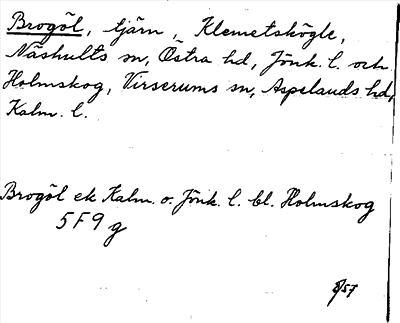 Brogöl, tjärn, Klemetskögle,
Näshults sn, Östra hd, Jönk. l. och
Holmskog, Virserums sn, Aspelands hd,
Kalm. l.
Brogöl ek Kalm. o. Jönk. l. bl. Holmskog
5F9g
/57